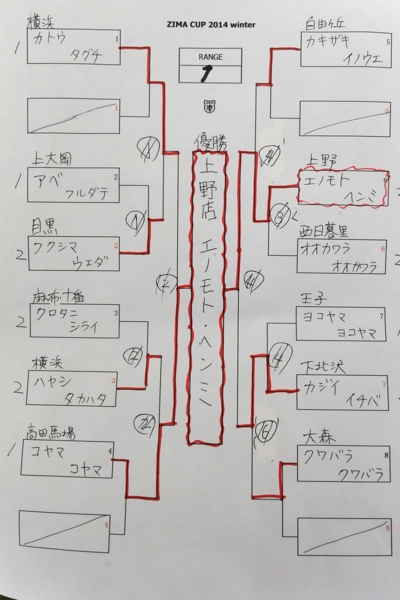 ZIMA CUP 2014 winter
RANGE
1
優勝
上野店 エノモト・ヘンミ
横浜
カトウ
タグチ
1
1
上大岡
アベ
フルダテ
2
目黒
フクシマ
ウエダ
2
麻布十番
クロタニ
シライ
3
横浜
ハヤシ
タカハタ
3
高田馬場
コヤマ
コヤマ
4
自由ヶ丘
カキザキ
イノウエ
5
5
上野
エノモト
ヘンミ
西日暮里
オオカワラ
オオカワラ
6
王子
ヨコヤマ
ヨコヤマ
7
下北沢
カジイ
イチバ
7
大森
クワバラ
クワバラ
8
8